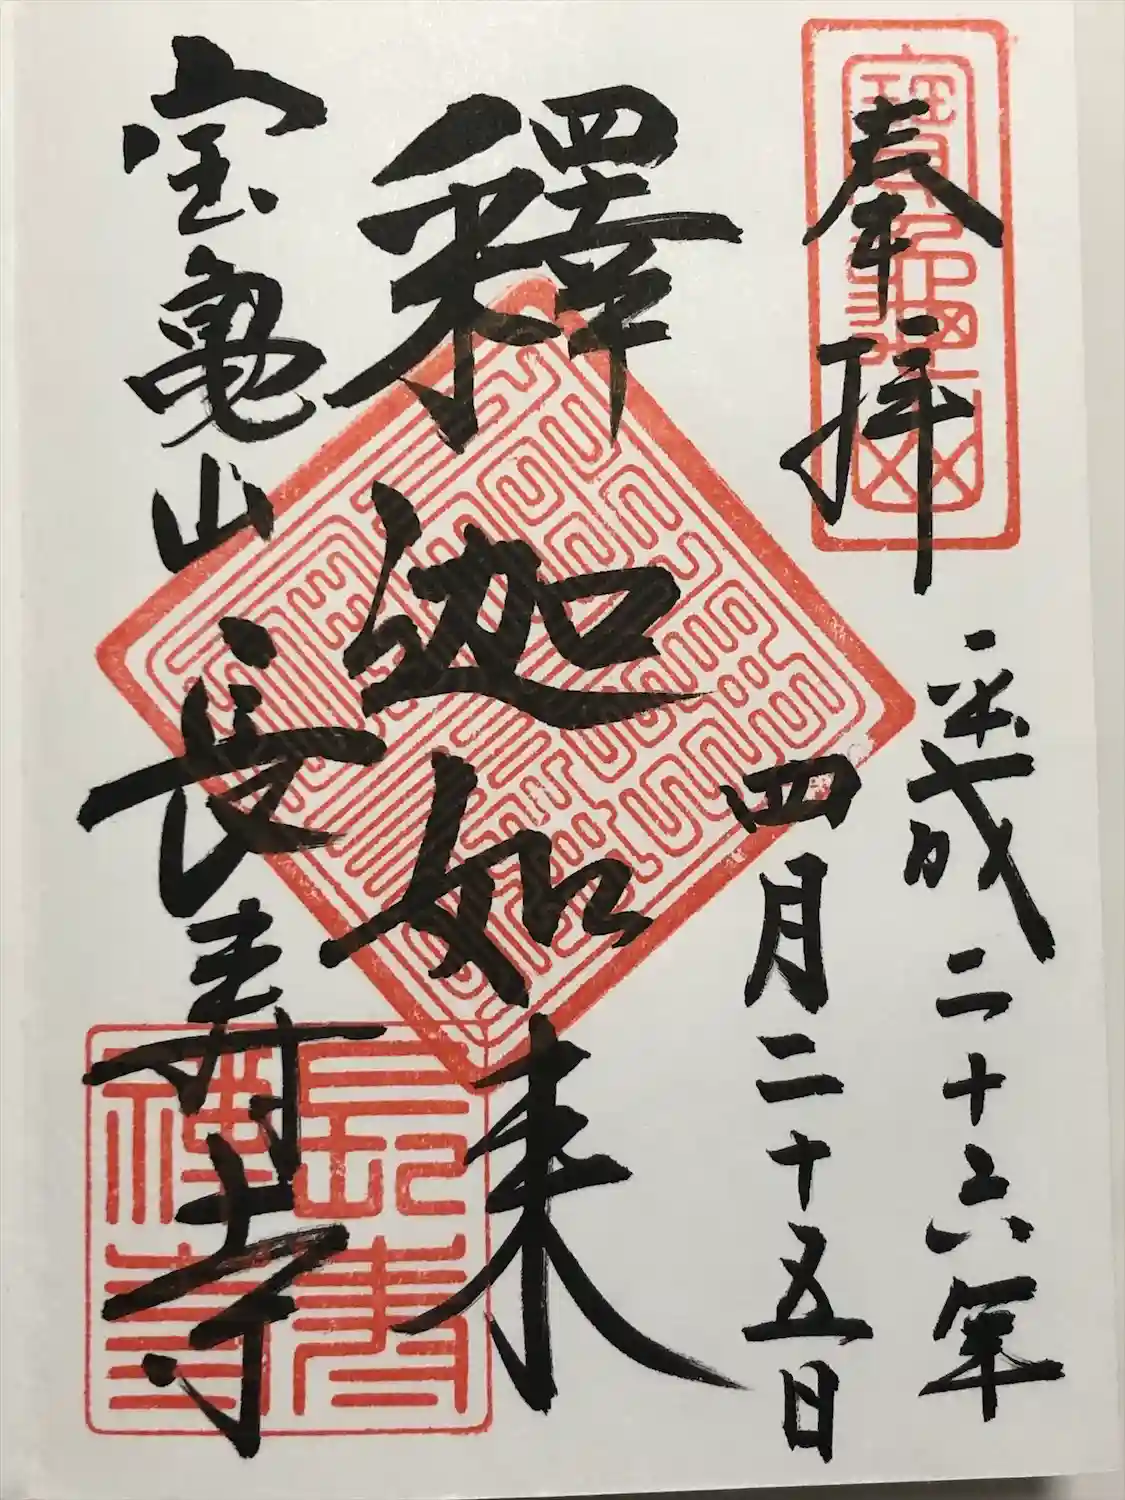 奉拝
平成二十六年
四月二十五日
釋迦如来
宝亀山
長寿寺
長寿
禅寺